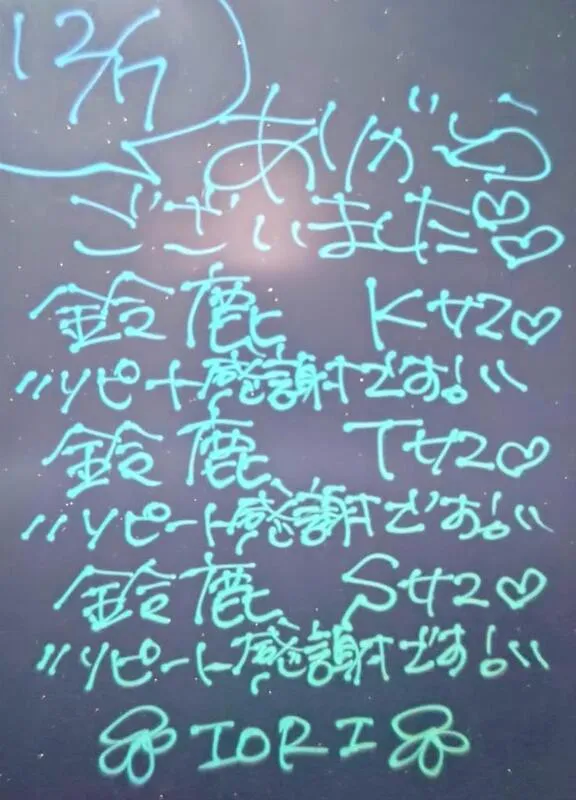 12/7
ありがとう
ございました♡♡
鈴鹿 Kサン♡
〃リピート感謝です!〃
鈴鹿 Tサン♡
〃リピート感謝です!〃
鈴鹿 Sサン♡
〃リピート感謝です!〃
IORI